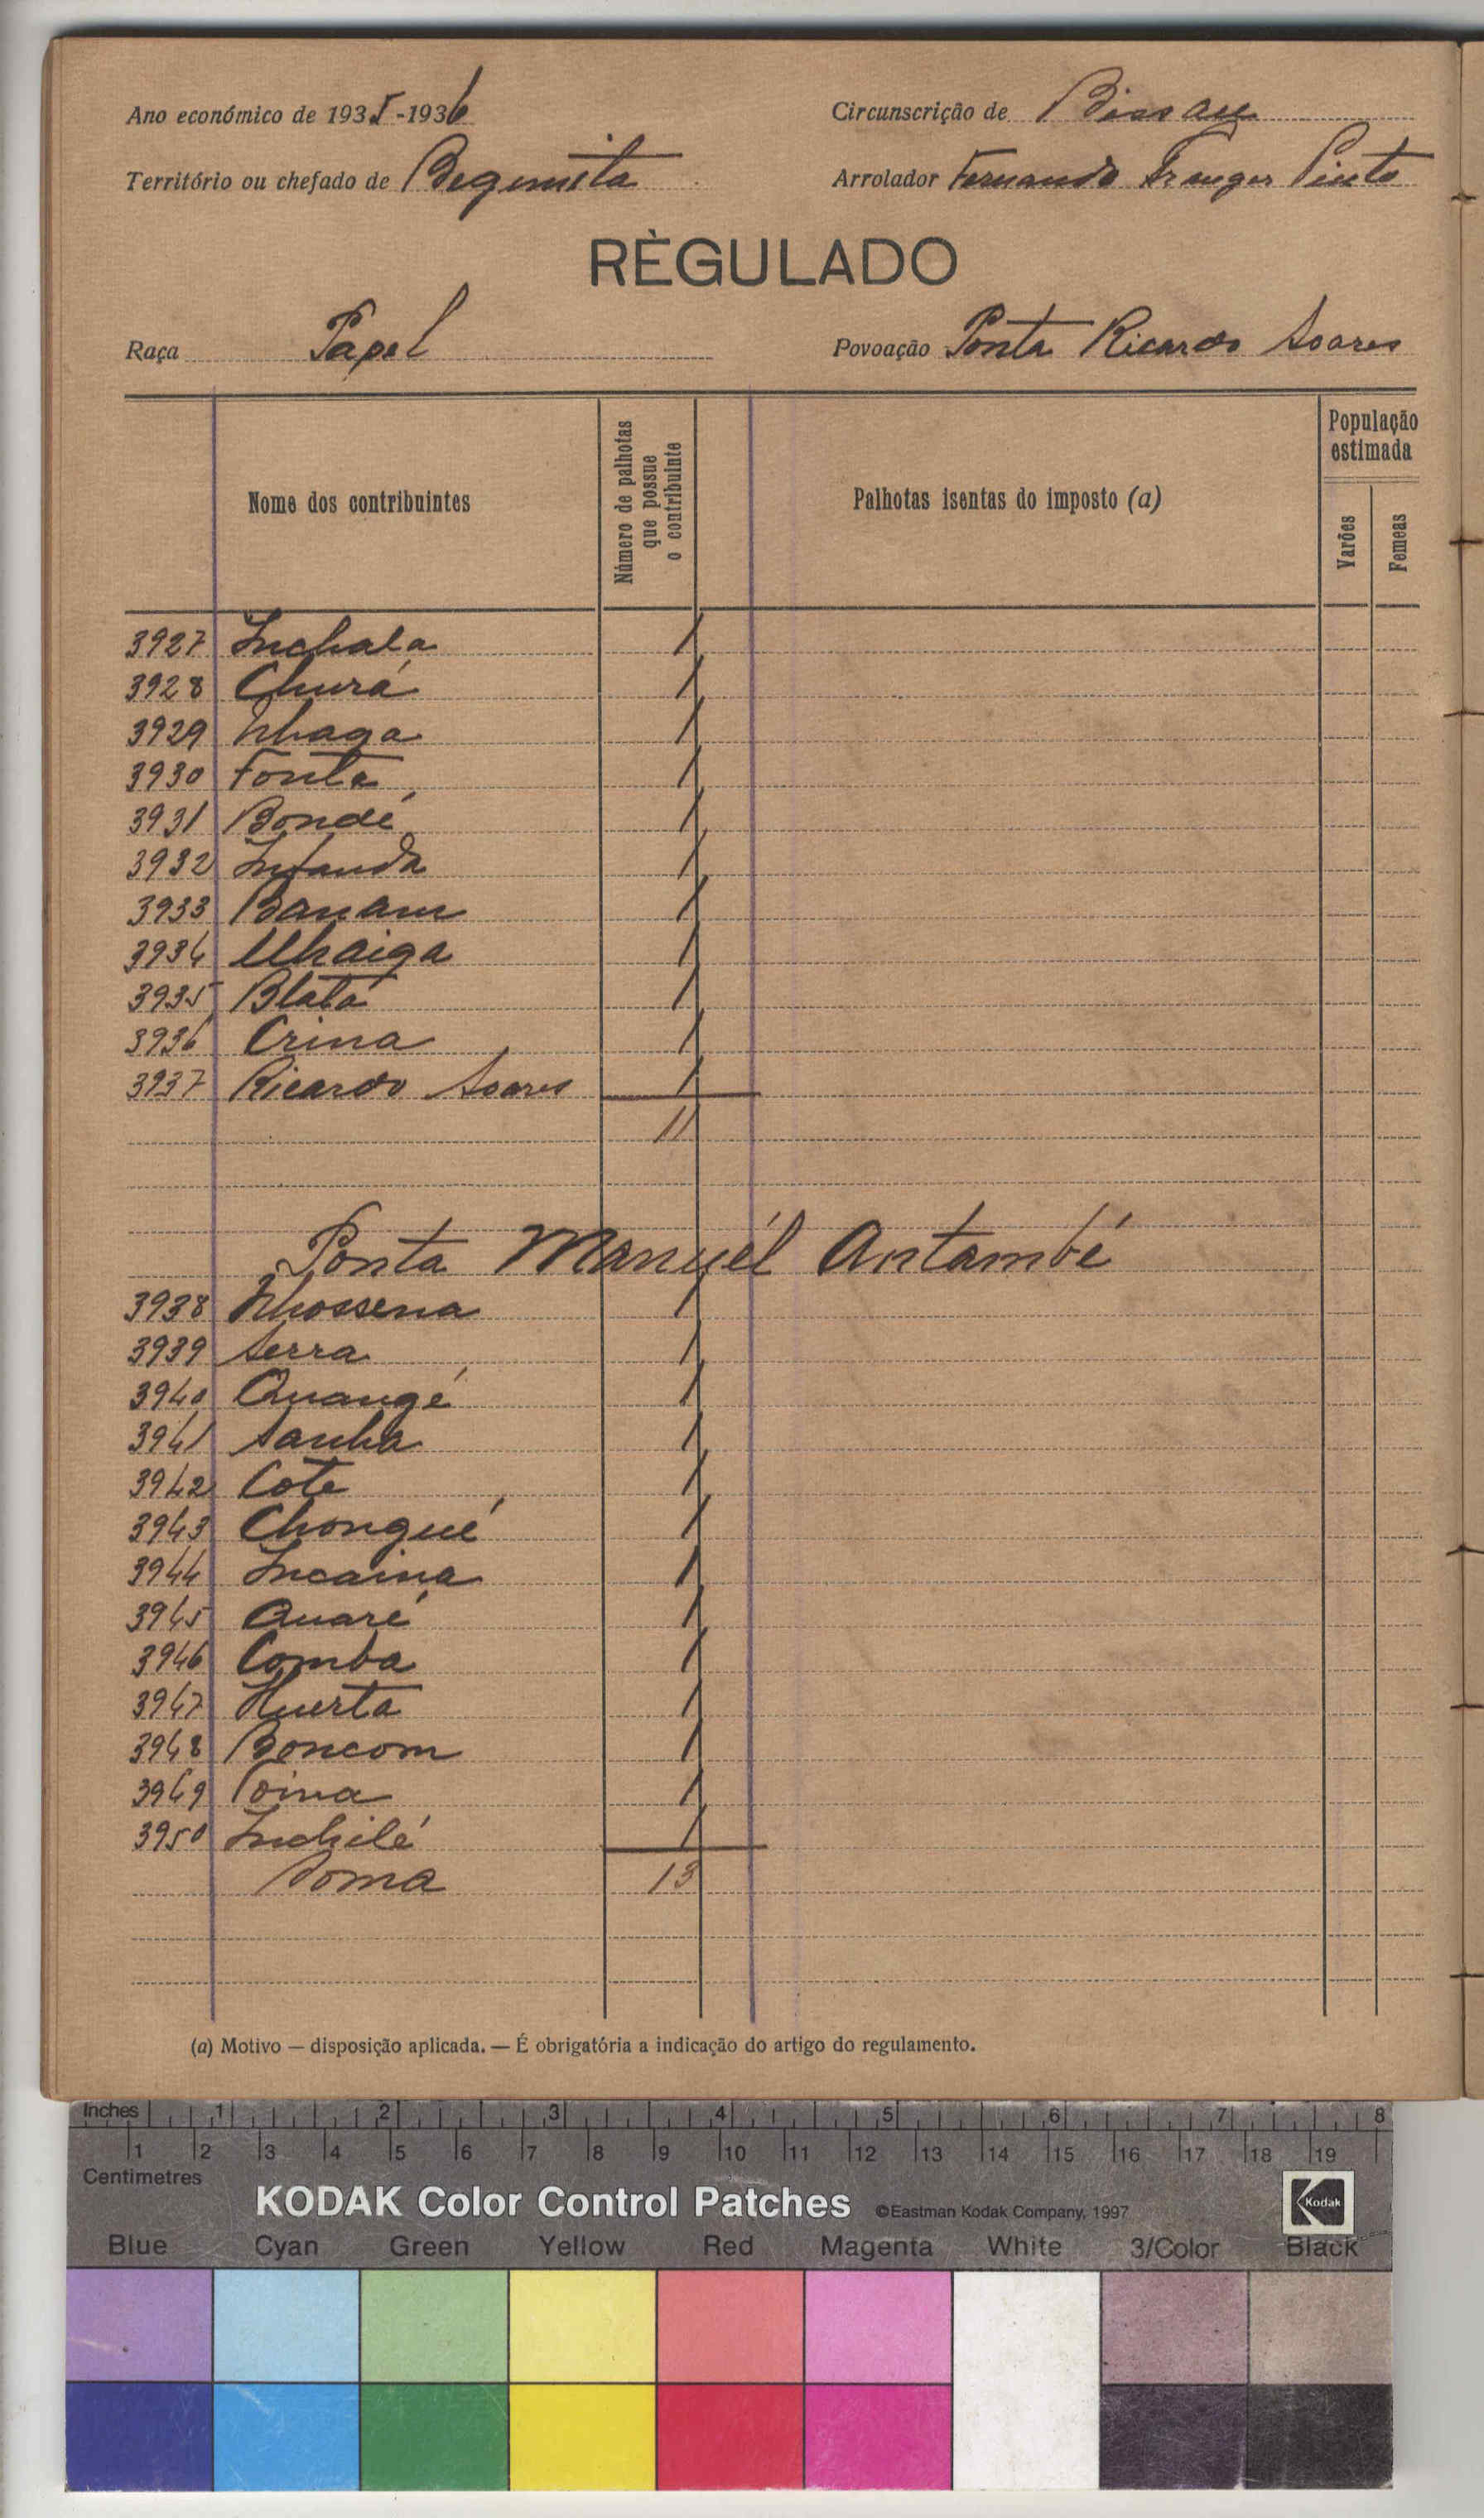 Ano económico de 1935-1936
Circunscrição de Bissau
Território ou chefado de Begemita
Arrolador Fernando Pinto
RÈGULADO
Raça Papel
Povoação Ponta Ricardo Soares
Nome dos contribuintes
Número de palhotas que possue o contribuinte
Palhotas isentas do imposto (a)
População estimada
Varões
Femeas
3927 Inchala 1
3928 Churá 1
3929 Nhaga 1
3930 Fonta 1
3931 Bondé 1
3932 Infanda 1
3933 Banam 1
3934 Uhaiga 1
3935 Blatá 1
3936 Crina 1
3937 Ricardo Soares 1
11
Ponta Manuél Antambé
3938 Nhossena 1
3939 Serra 1
3940 Quangé 1
3941 Sanha 1
3942 Cote 1
3943 Chongué 1
3944 Incaina 1
3945 Quaré 1
3946 Comba 1
3947 Huerta 1
3948 Boncom 1
3949 Coina 1
3950 Inchilé 1
Soma 13
(a) Motivo — disposição aplicada. — É obrigatória a indicação do artigo do regulamento.
Inches 1 2 3 4 5 6 7 8
1 2 3 4 5 6 7 8 9 10 11 12 13 14 15 16 17 18 19
Centimetres
KODAK Color Control Patches ©Eastman Kodak Company, 1997 Kodak
Blue Cyan Green Yellow Red Magenta White 3/Color Black